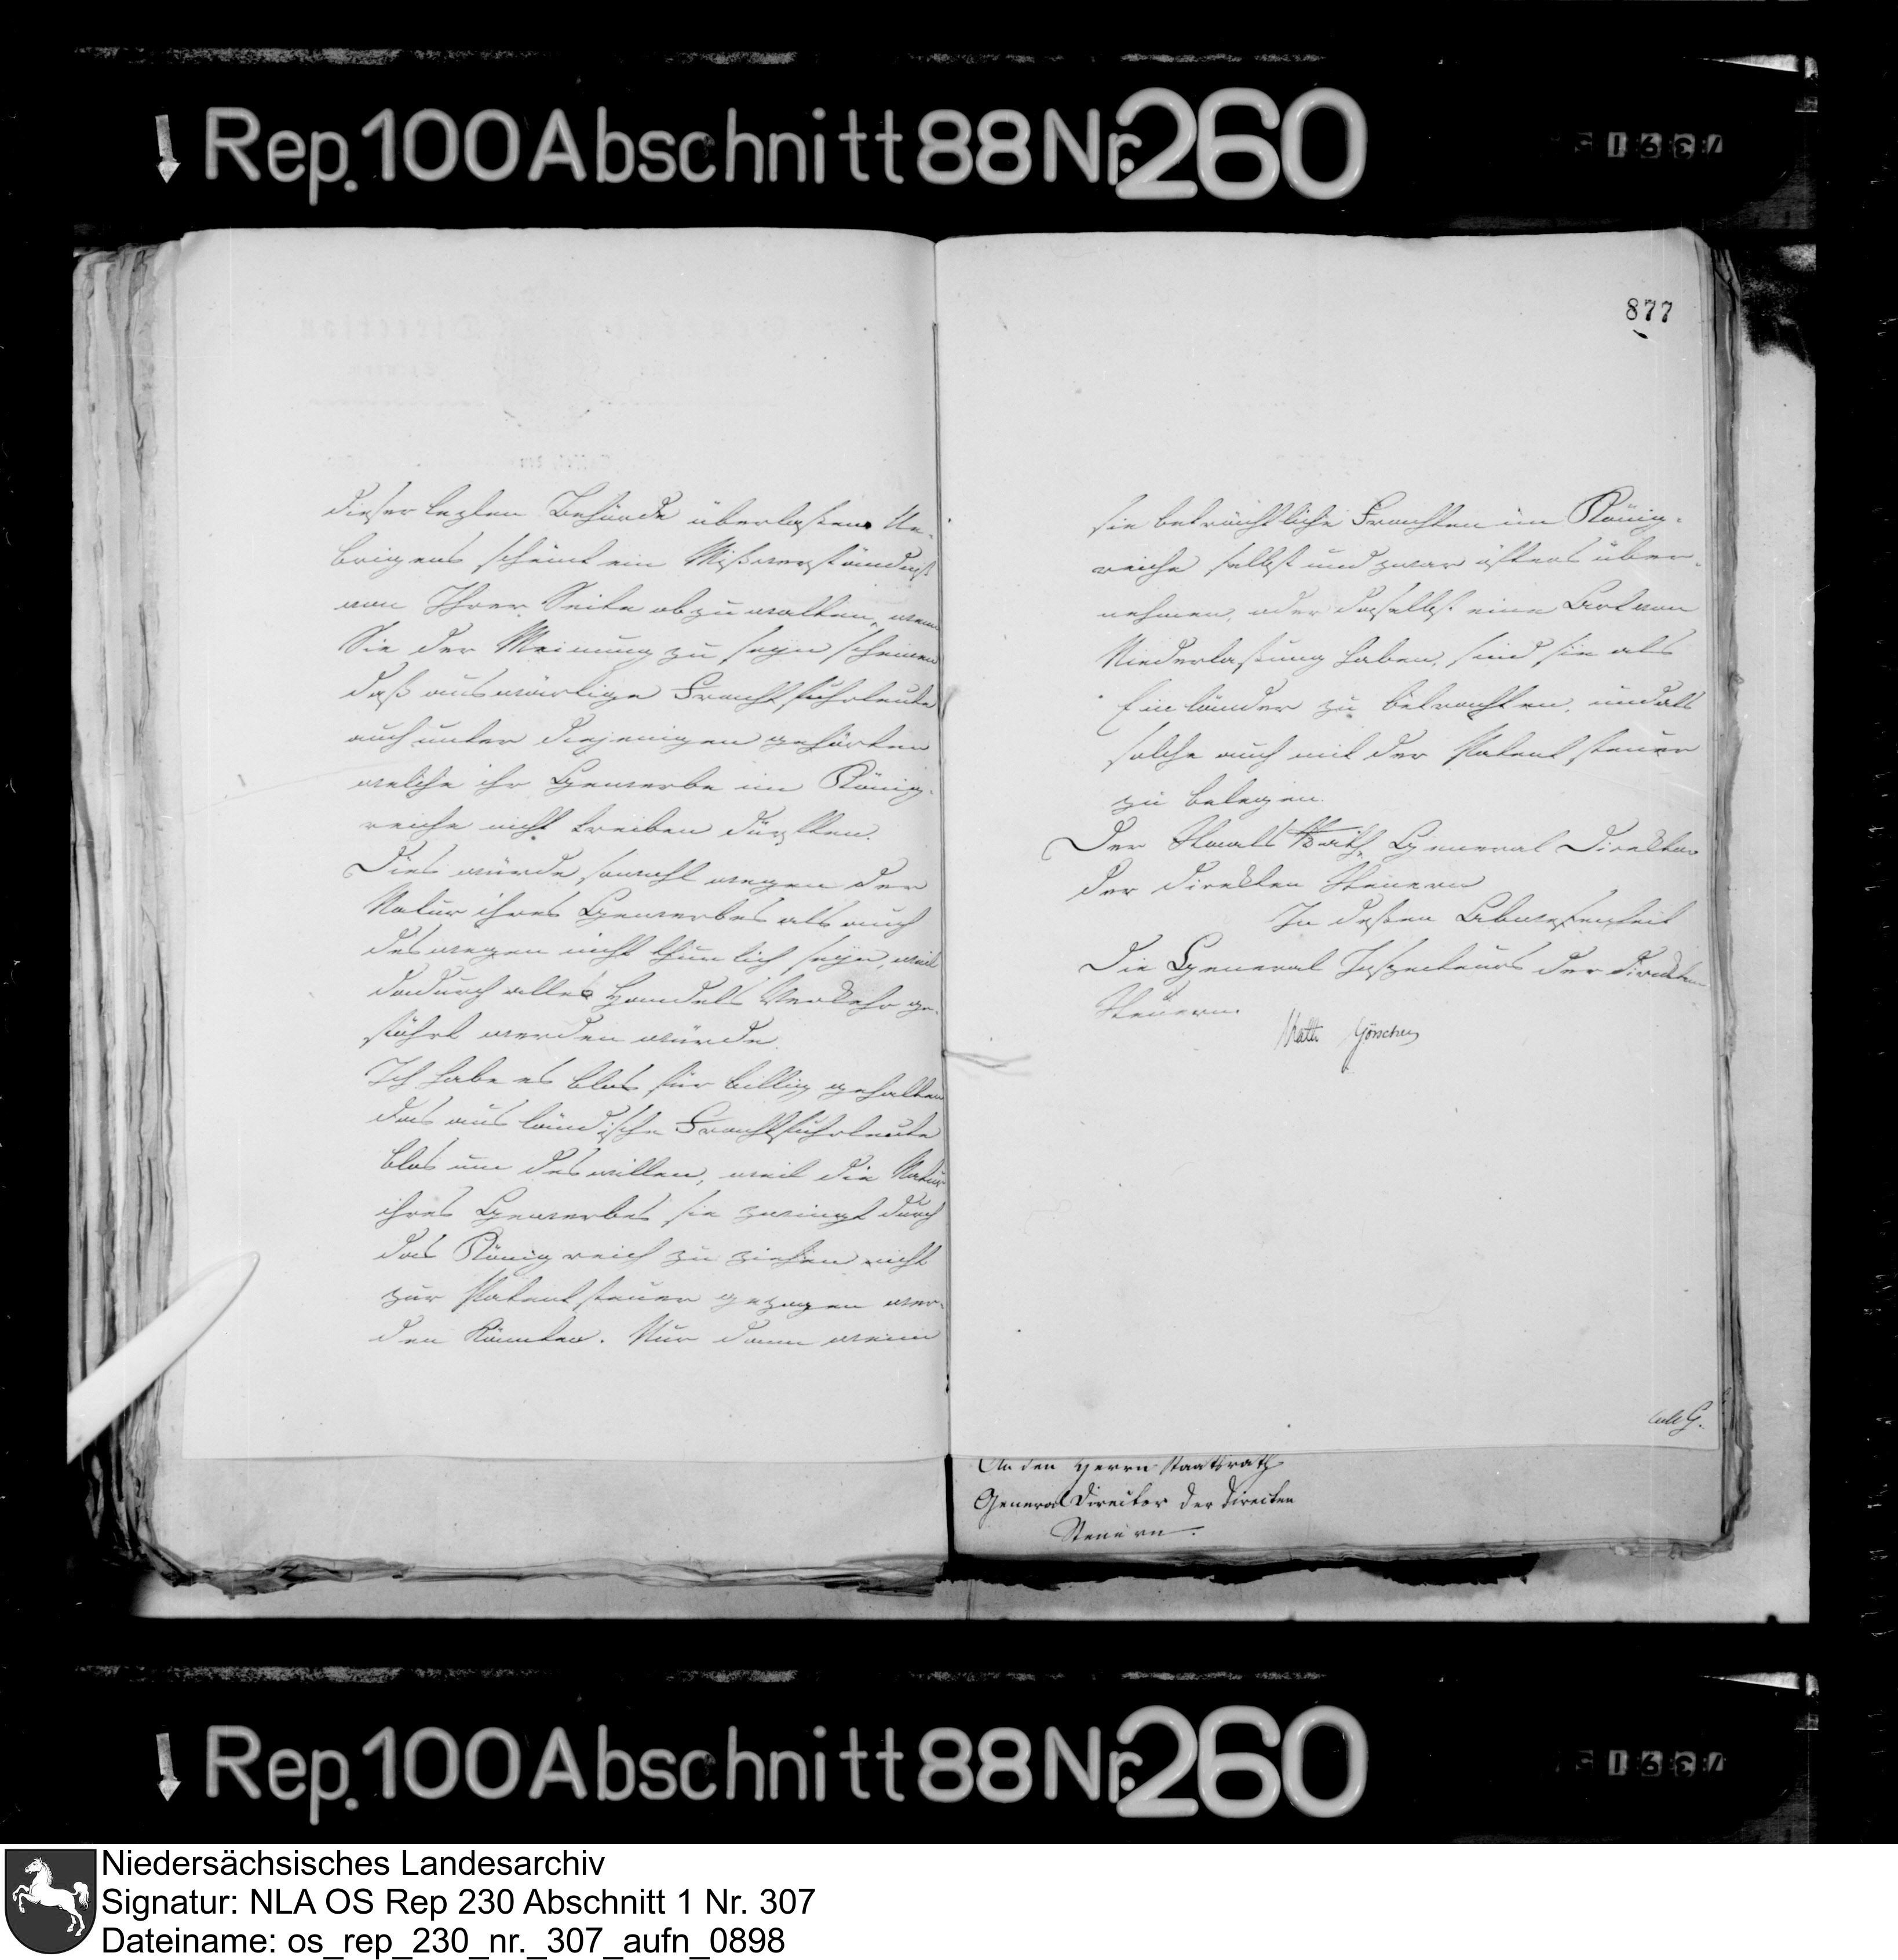 Rep. 100 Abschnitt 88 Nr. 260
877
dieser lezten Behörde überlaßen. Ue-
brigens scheint ein Mißverständniß
von Ihrer Seite obzuwalten, wenn
Sie der Meinung zu seyn scheinen
daß auswärtige Frachtfuhrleute
auch unter diejenigen gehörten
welche ihr Gewerbe im König-
reiche nicht treiben dürften.
Dies würde sowohl wegen der
Natur ihres Gewerbes als auch
deswegen nicht thunlich seyn, weil
dadurch aller Handels Verkehr ge-
stöhrt werden würde.
Ich habe es blos für billig gehalten
das ausländische Frachtfuhrleute
blos um deswillen, weil die Natur
ihres Gewerbes sie zwingt durch
das Königreich zu ziehen nicht
zur Patentsteuer gezogen wer-
den könnten. Nur dann wenn
sie beträchtliche Frachten im König-
reiche selbst und zwar öfters über-
nehmen, oder daselbst eine Art von
Niederlaßung haben, sind sie als
Einländer zu betrachten, und als
solche auch mit der Patentsteuer
zu belegen.
Der Staats Rath, General Direktor
der direkten Steuern
In deßen Abwesenheit
Die General Inspecteurs der direkten
Steuern.
An den Herrn Staatsrath
General Director der directen
Steuern.
Rep. 100 Abschnitt 88 Nr. 260
Niedersächsisches Landesarchiv
Signatur: NLA OS Rep 230 Abschnitt 1 Nr. 307
Dateiname: os_rep_230_nr._307_aufn_0898